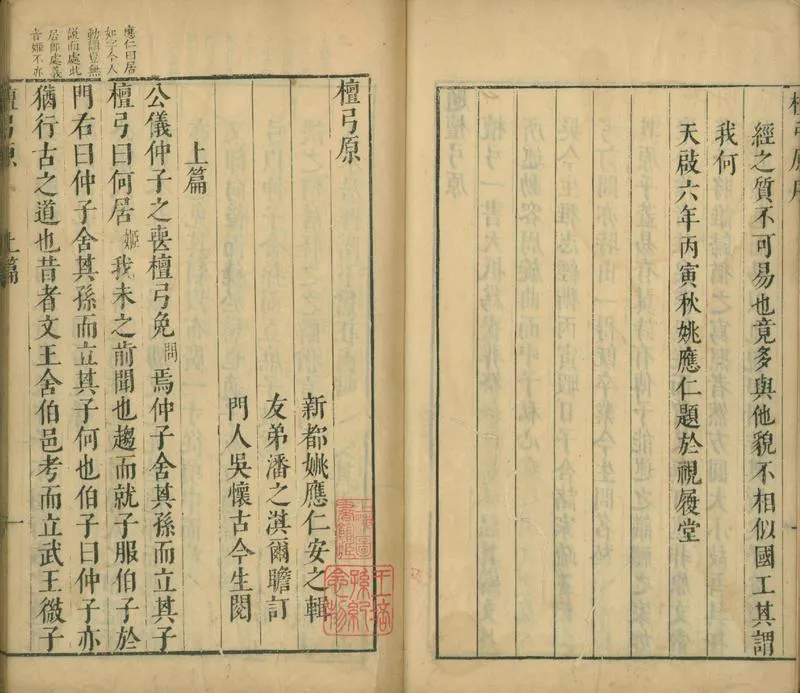 經之質不可易也竟多與他貌不相似國工其謂
我何
天啟六年丙寅秋姚應仁題於視履堂
檀弓原
新都姚應仁安之輯
友弟潘之淇爾瞻訂
門人吳懷古今生閱
上篇
公儀仲子之喪檀弓免問焉仲子舍其孫而立其子
檀弓曰何居姬我未之前聞也趨而就子服伯子於
門右曰仲子舍其孫而立其子何也伯子曰仲子亦
猶行古之道也昔者文王舍伯邑考而立武王微子
應仁曰居
如字今人
動謂豈無
說而處此
居即處義
音姬不亦
檀弓原
上篇
一